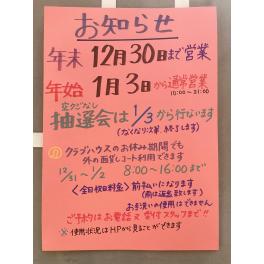 お知らせ
年末 12月30日まで営業
年始 1月3日から通常営業
10:00~21:00
空クジなし
抽選会は 1/3 から行ないます
(なくなり次第、終了します)
クラブハウスのお休み期間でも
外の面貸しコート利用できます
12/31~1/2 8:00~16:00まで
<全日収日料金> 前払いになります
(雨は返金致します)
お手洗いの使用はできません
ご予約はお電話又受付スタッフまで!!
※使用状況はHPから見ることができます